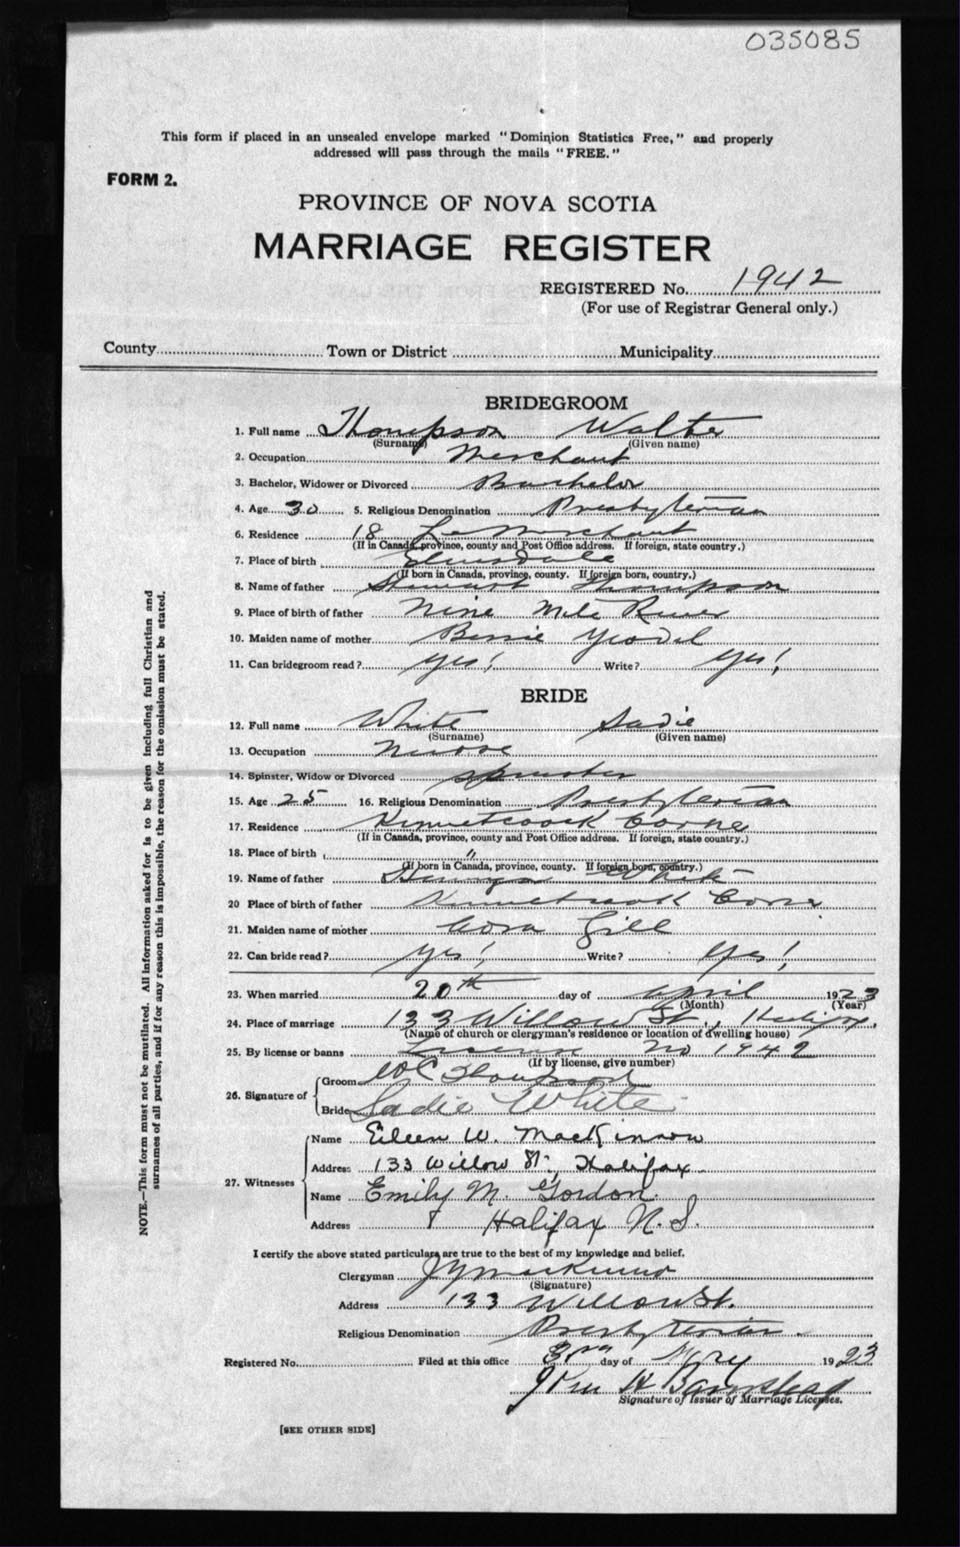 035085
This form if placed in an unsealed envelope marked "Dominion Statistics Free," and properly
addressed will pass through the mails "FREE."
FORM 2.
PROVINCE OF NOVA SCOTIA
MARRIAGE REGISTER
REGISTERED No. 1942
(For use of Registrar General only.)
County Town or District Municipality
BRIDEGROOM
1. Full name Thompson Walter
(Surname) (Given name)
2. Occupation Merchant
3. Bachelor, Widower or Divorced Bachelor
4. Age 30 5. Religious Denomination Presbyterian
6. Residence 18 LeMerchant
(If in Canada, province, county and Post Office address. If foreign, state country.)
7. Place of birth Elmsdale
(If born in Canada, province, county. If foreign born, country.)
8. Name of father Stewart Thompson
9. Place of birth of father Nine Mile River
10. Maiden name of mother Bessie
11. Can bridegroom read? yes! Write? yes!
BRIDE
12. Full name White Sadie
(Surname) (Given name)
13. Occupation Nurse
14. Spinster, Widow or Divorced spinster
15. Age 25 16. Religious Denomination Presbyterian
17. Residence Kennetcook Corner
(If in Canada, province, county and Post Office address. If foreign, state country.)
18. Place of birth "
(If born in Canada, province, county. If foreign born, country.)
19. Name of father White
20 Place of birth of father Kennetcook Corner
21. Maiden name of mother Cora Gill
22. Can bride read? yes! Write? yes!
23. When married 20th day of April 1923
(Month) (Year)
24. Place of marriage 133 Willow St., Halifax.
(Name of church or clergyman's residence or location of dwelling house)
25. By license or banns License No 1942
(If by license, give number)
26. Signature of Groom W C Thompson
Bride Sadie White
27. Witnesses Name Eileen W. MacKinnon
Address 133 Willow St., Halifax
Name Emily M. Gordon.
Address Halifax N. S.
I certify the above stated particulars are true to the best of my knowledge and belief.
Clergyman
(Signature)
Address 133 Willow St.
Religious Denomination Presbyterian.
Registered No. Filed at this office 3rd day of May 1923
Signature of Issuer of Marriage Licenses.
[SEE OTHER SIDE]
NOTE.—This form must not be mutilated. All information asked for is to be given including full Christian and
surnames of all parties, and if for any reason this is impossible, the reason for the omission must be stated.